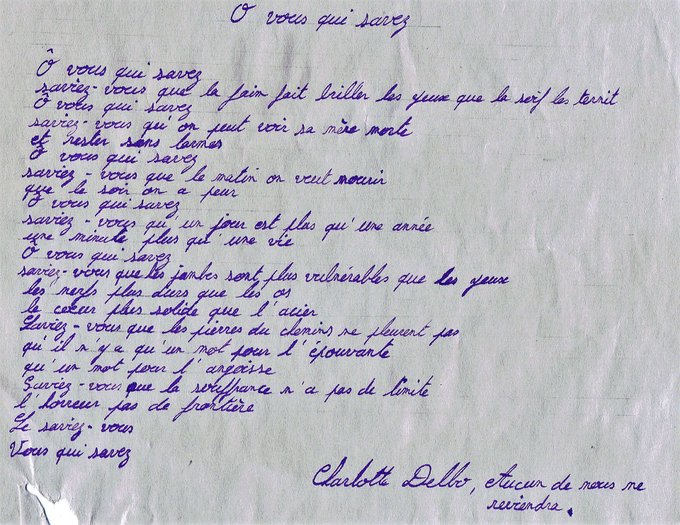 Ô vous qui savez
Ô vous qui savez
saviez-vous que la faim fait briller les yeux que la soif les ternit
Ô vous qui savez
saviez-vous qu'on peut voir sa mère morte
et rester sans larmes
Ô vous qui savez
saviez-vous que le matin on veut mourir
que le soir on a peur
Ô vous qui savez
saviez-vous qu'un jour est plus qu'une année
une minute plus qu'une vie
Ô vous qui savez
saviez-vous que les jambes sont plus vulnérables que les yeux
les nerfs plus durs que les os
le coeur plus solide que l'acier
Saviez-vous que les pierres du chemins ne pleurent pas
qu'il n'y a qu'un mot pour l'épouvante
qu'un mot pour l'angoisse
Saviez-vous que la souffrance n'a pas de limite
l'horreur pas de frontière
Le saviez-vous
Vous qui savez
Charlotte Delbo, Aucun de nous ne
reviendra.